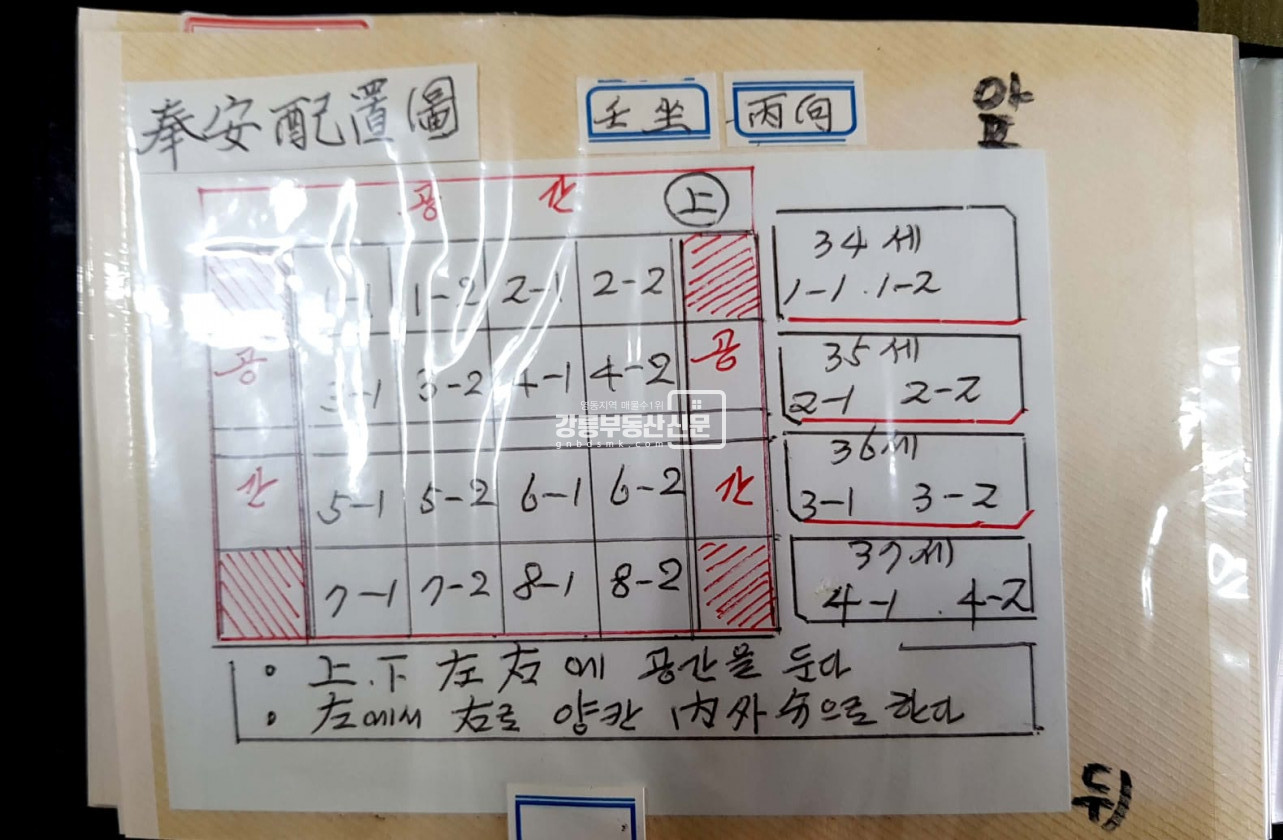 奉安配置圖
壬坐 丙向
앞
공 간 上
1-1 1-2 2-1 2-2
공 3-1 3-2 4-1 4-2 공
간 5-1 5-2 6-1 6-2 간
7-1 7-2 8-1 8-2
34세
1-1 . 1-2
35세
2-1 2-2
36세
3-1 3-2
37세
4-1 . 4-2
영동지역 매물수1위
강릉부동산신문
gnbdsmk.com
• 上.下 左右에 공간을 둔다
• 左에서 右로 양칸 內外 숫으로 한다
뒤